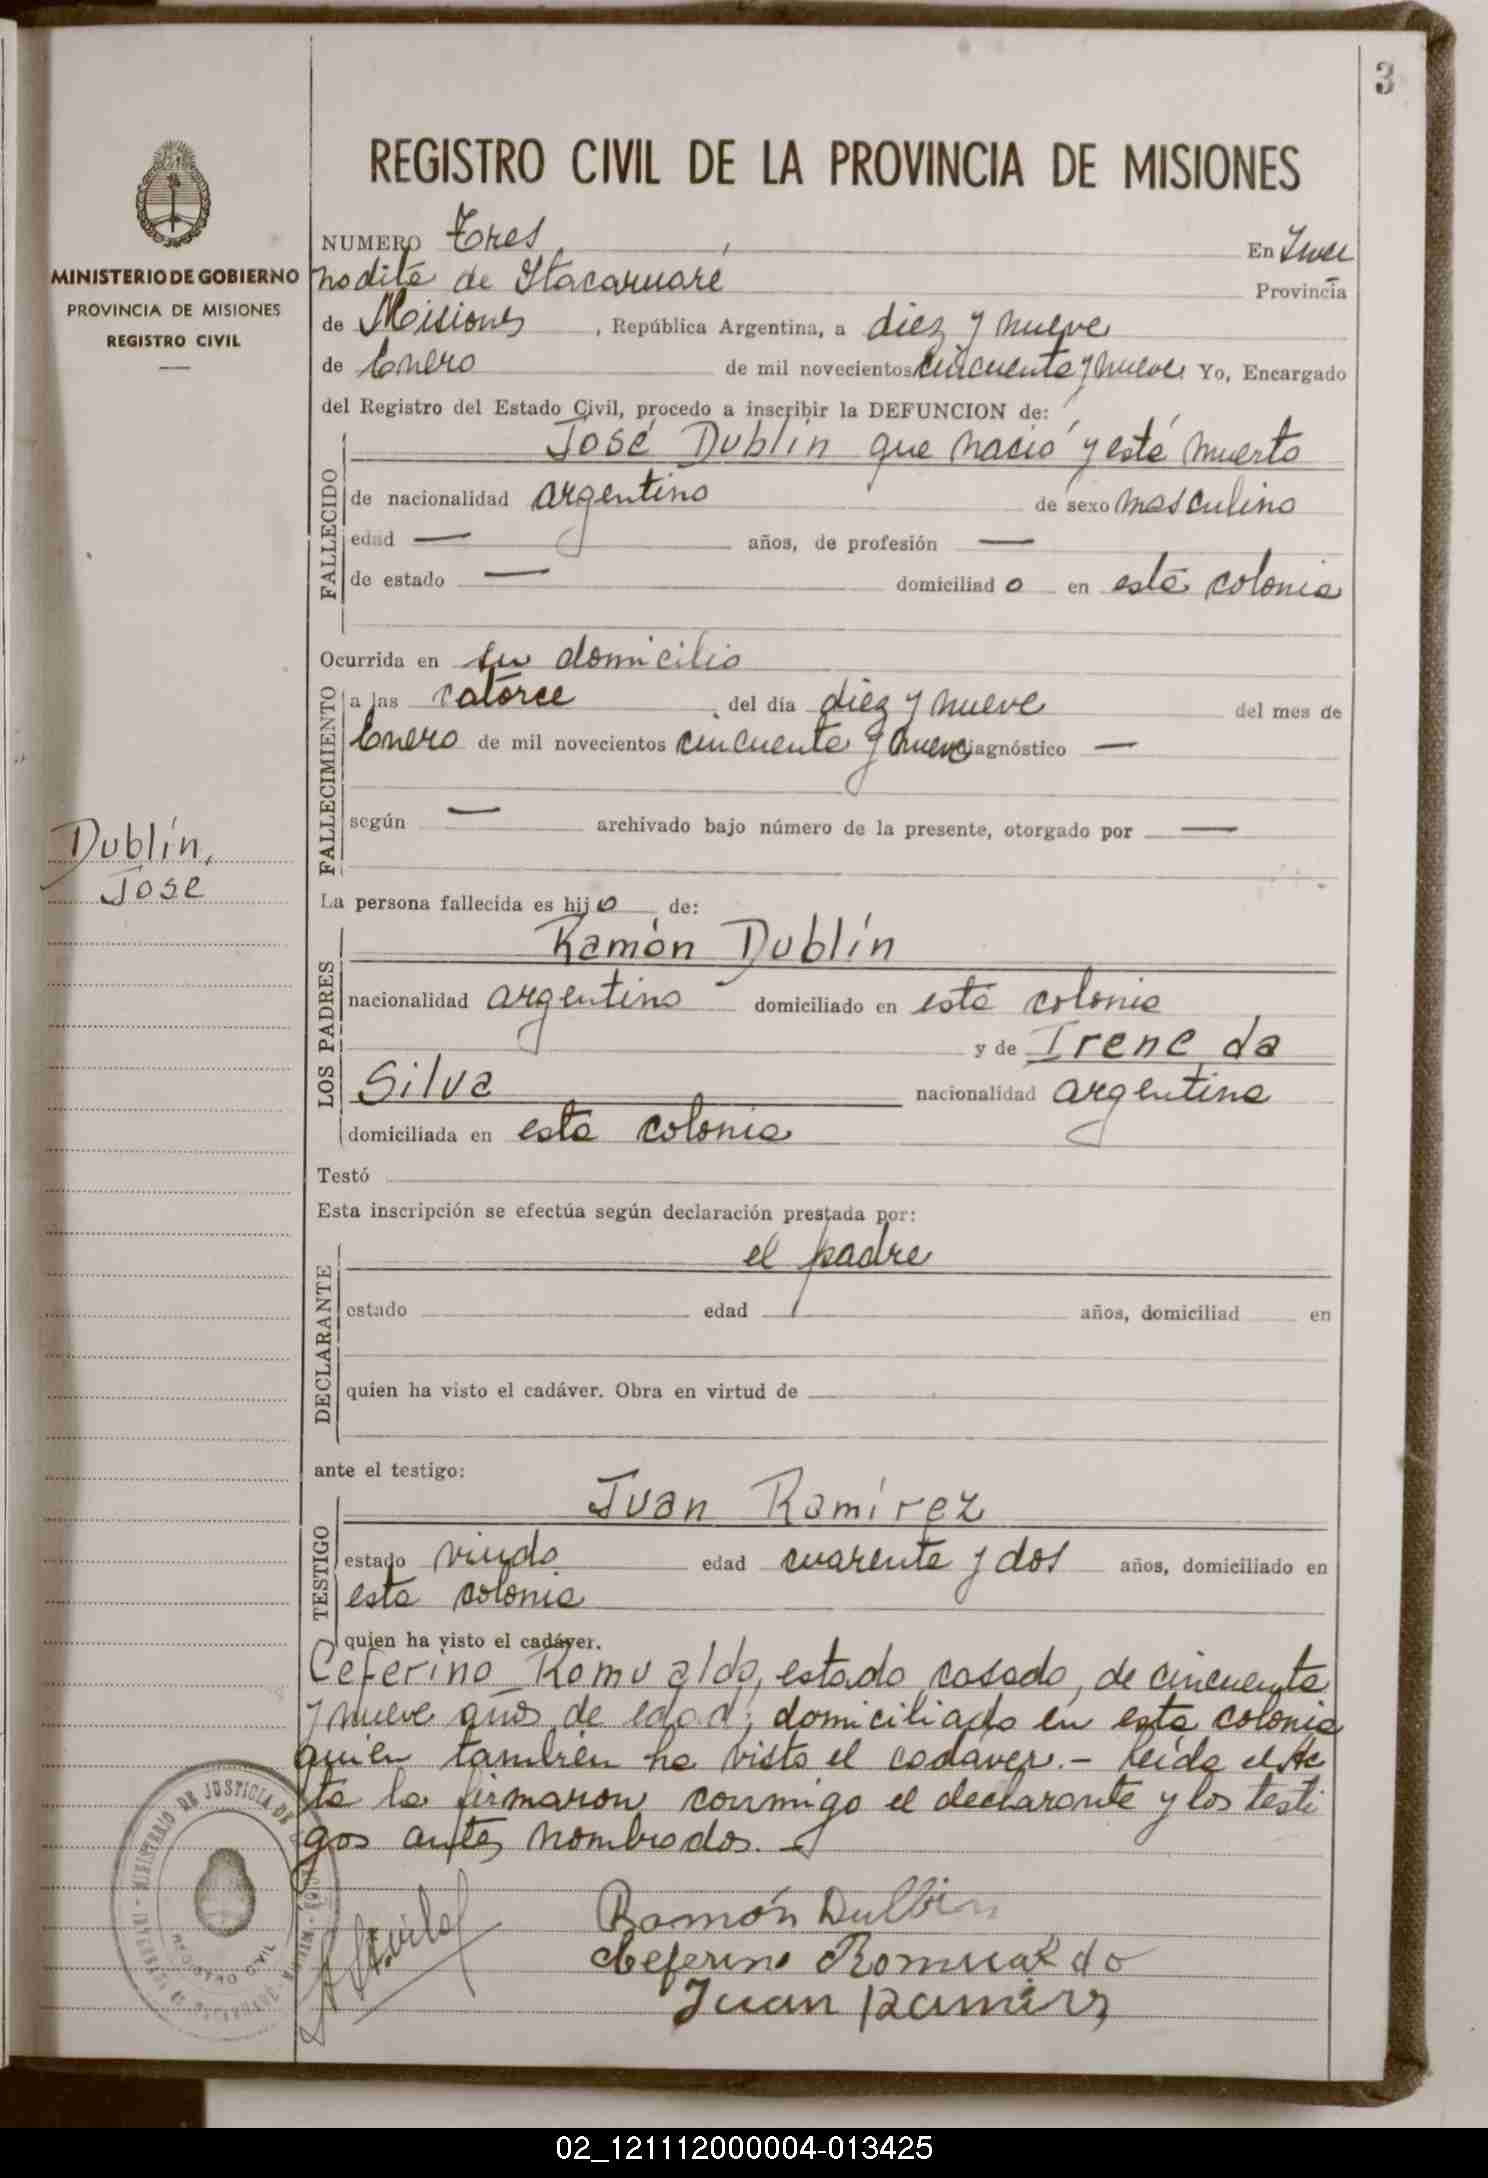 3
REGISTRO CIVIL DE LA PROVINCIA DE MISIONES
MINISTERIO DE GOBIERNO
PROVINCIA DE MISIONES
REGISTRO CIVIL
NUMERO Tres En
de Itacaruaré Provincia
de Misiones, República Argentina, a diez y nueve
de Enero de mil novecientos cincuenta y nueve Yo, Encargado
del Registro del Estado Civil, procedo a inscribir la DEFUNCION de:
José Dublín que nació y está muerto
FALLECIDO
de nacionalidad argentino de sexo masculino
edad — años, de profesión —
de estado — domiciliado en esta colonia
Ocurrida en su domicilio
FALLECIMIENTO
a las catorce del día diez y nueve del mes de
Enero de mil novecientos cincuenta y nueve diagnóstico —
según — archivado bajo número de la presente, otorgado por —
Dublín,
José
La persona fallecida es hijo de:
LOS PADRES
Ramón Dublín
nacionalidad argentino domiciliado en esta colonia
y de Irene da
Silva nacionalidad argentina
domiciliada en esta colonia
Testó
Esta inscripción se efectúa según declaración prestada por:
DECLARANTE
el padre
estado edad años, domiciliad en
quien ha visto el cadáver. Obra en virtud de
ante el testigo:
TESTIGO
Juan Ramírez
estado viudo edad cuarenta y dos años, domiciliado en
esta colonia
quien ha visto el cadáver.
Ceferino Romualdo, estado casado, de cincuenta
y nueve años de edad, domiciliado en esta colonia
quien también ha visto el cadáver.- Leída el Ac
ta la firmaron conmigo el declarante y los testi
gos antes nombrados.-
Ramón Dulbin
Ceferino Romualdo
Juan Ramirez
MINISTERIO DE JUSTICIA
REGISTRO CIVIL
02_121112000004-013425